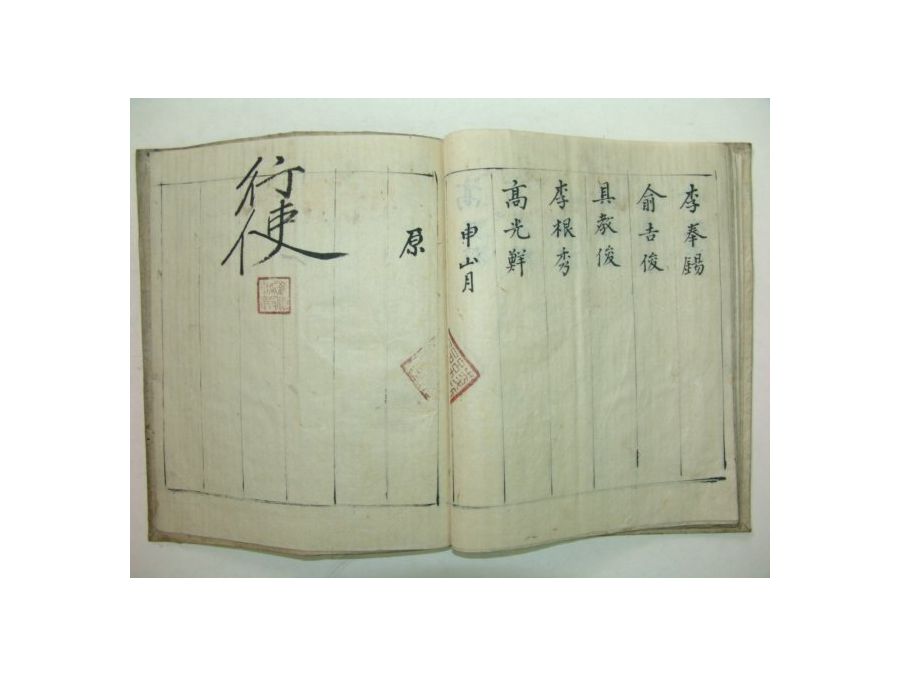 李奉賜
俞吉俊
具敎俊
李根秀
高光鮮
申山月
原
行使